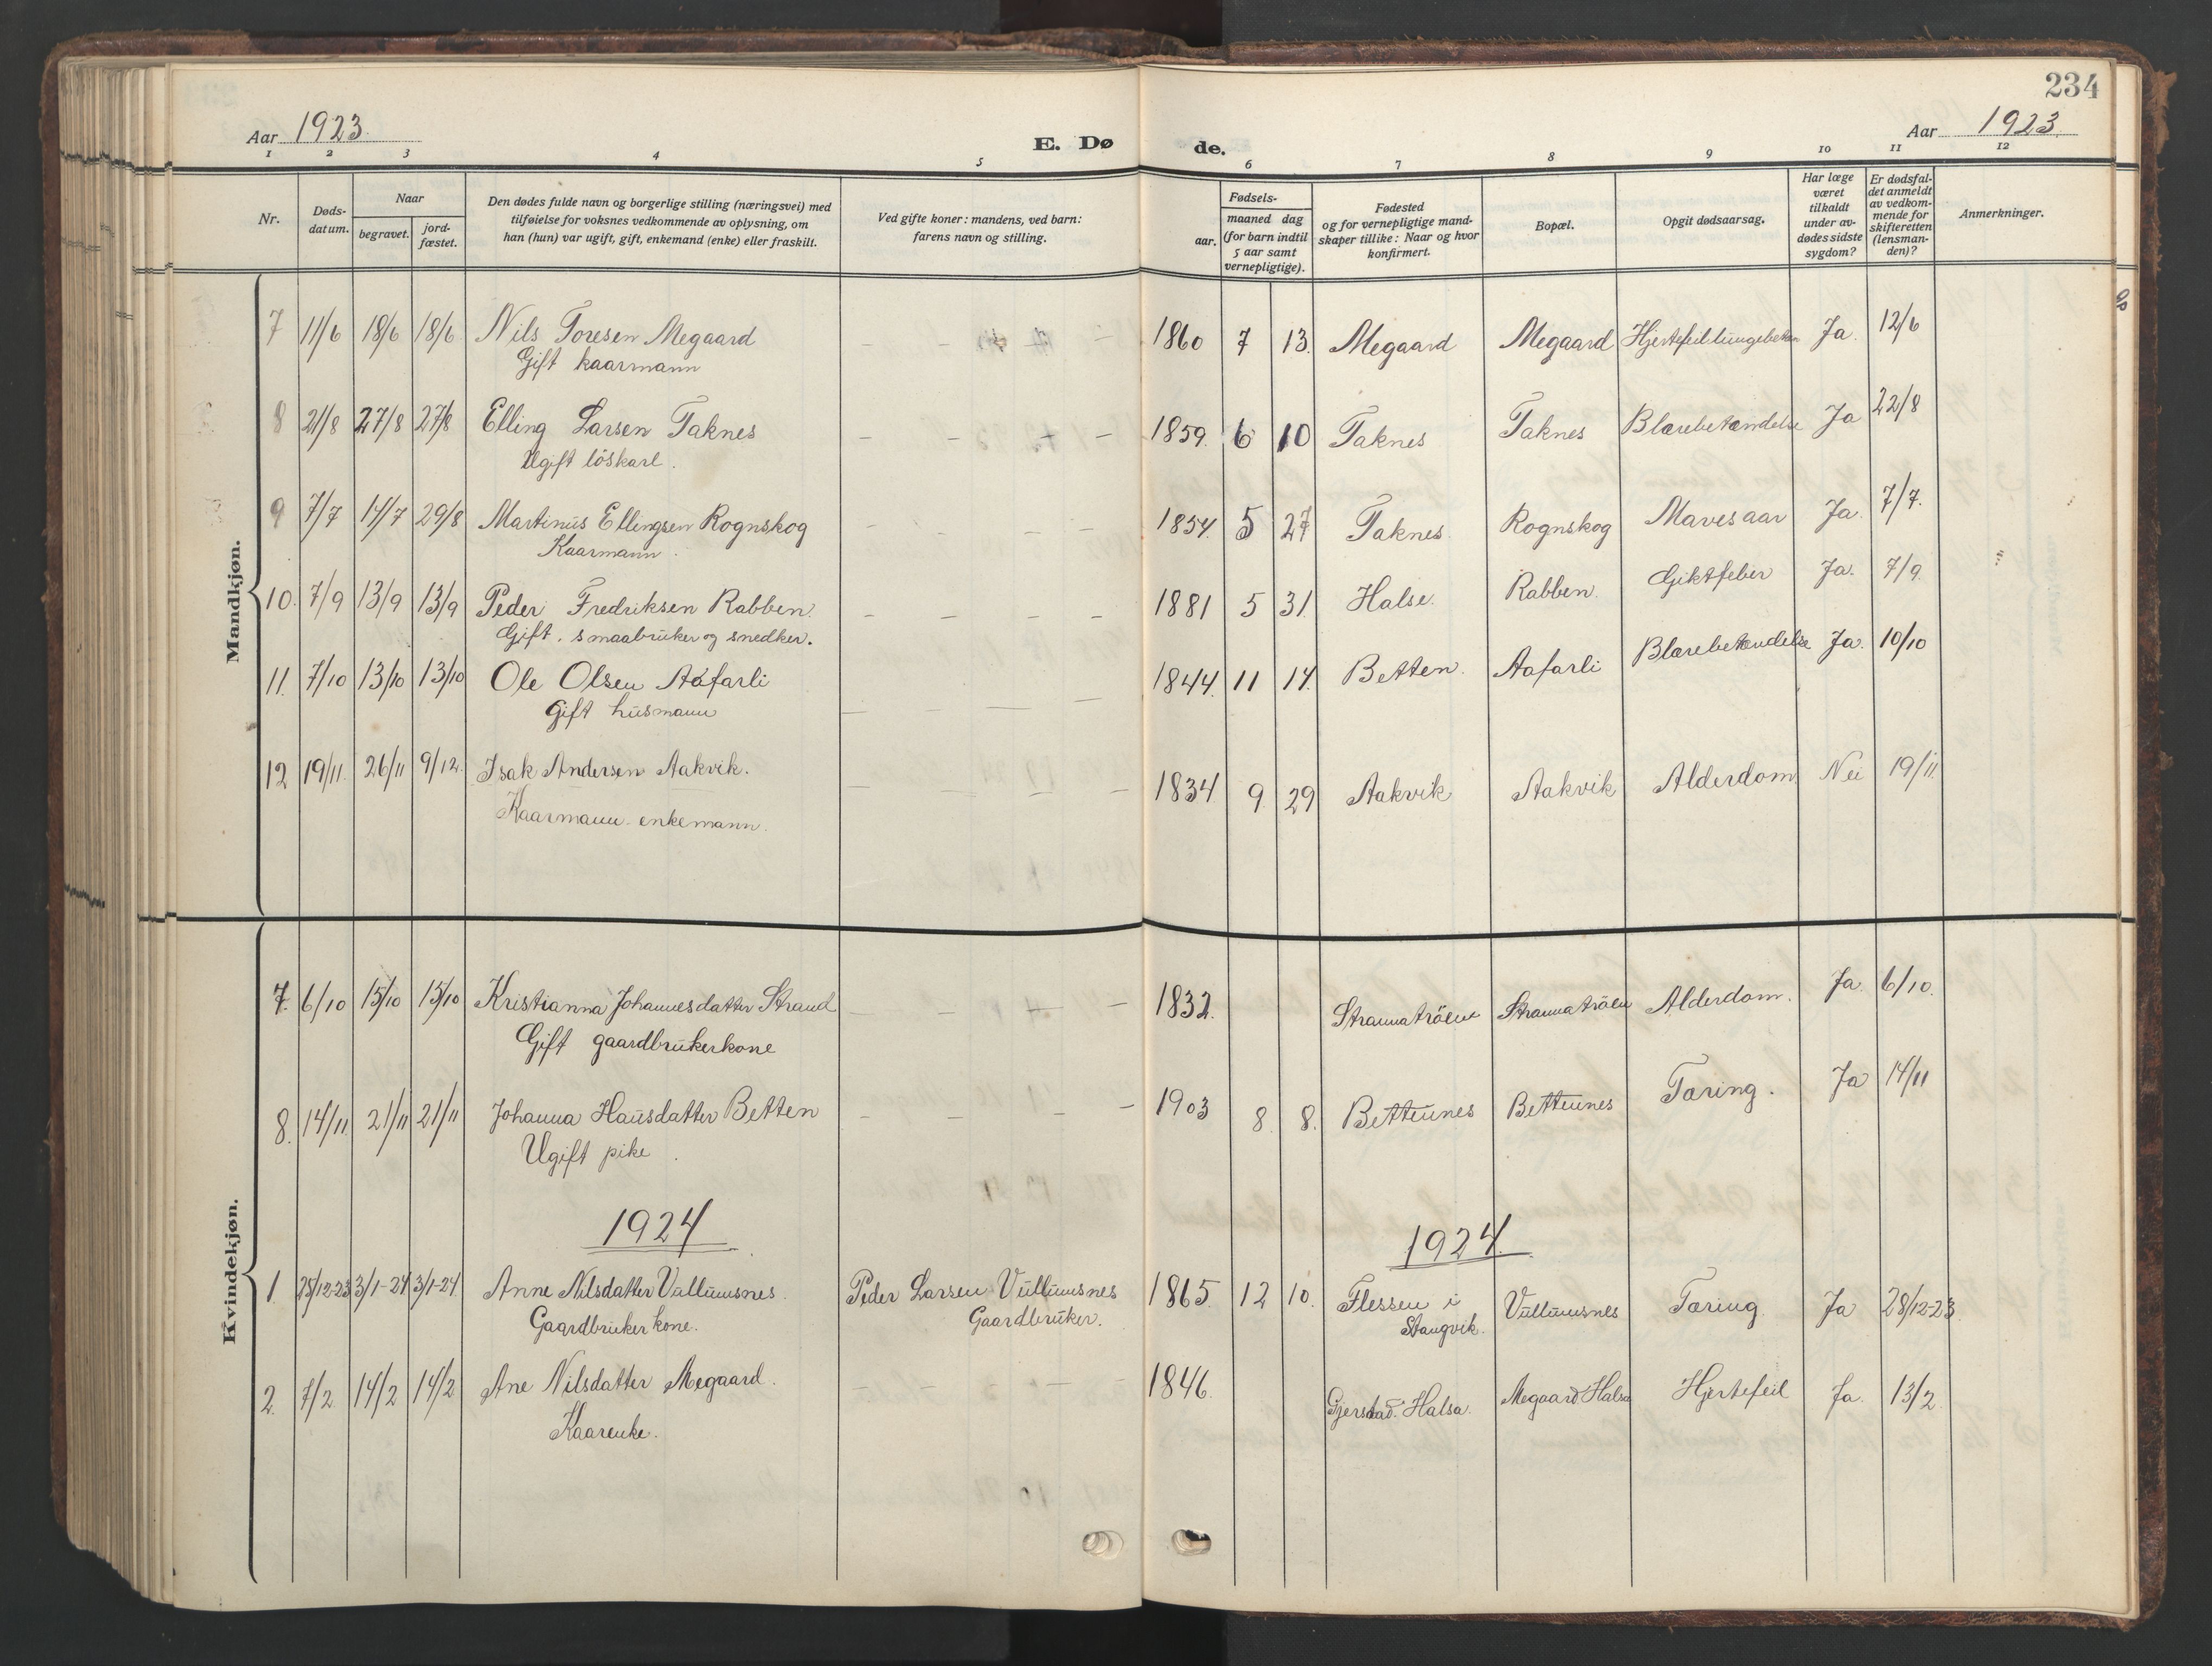 234
Aar 1923. E. Dø de. Aar 1923.
1 2 3 4 5 6 7 8 9 10 11 12
Nr.
Døds-
datum.
Naar
begravet.
jord-
fæstet.
Den dødes fulde navn og borgerlige stilling (næringsvei) med
tilføielse for voksnes vedkommende av oplysning, om
han (hun) var ugift, gift, enkemand (enke) eller fraskilt.
Ved gifte koner: mandens, ved barn:
farens navn og stilling.
Fødsels-
aar.
maaned dag
(for barn indtil
5 aar samt
vernepligtige).
Fødested
og for vernepligtige mand-
skaper tillike: Naar og hvor
konfirmert.
Bopæl.
Opgit dødsaarsag.
Har læge
været
tilkaldt
under av-
dødes sidste
sygdom?
Er dødsfal-
det anmeldt
av vedkom-
mende for
skifteretten
(lensman-
den)?
Anmerkninger.
Mandkjøn.
7 11/6 18/6 18/6 Nils Toresen Megaard - - - - 1860 7 13. Megaard Megaard Hjertefeil lungebeten Ja. 12/6
Gift kaarmann
8 21/8 27/8 27/8 Elling Larsen Taknes - - - - 1859. 6 10 Taknes Taknes Blærebetændelse Ja 22/8
Ugift löskarl.
9 7/7 14/7 29/8 Martinus Ellingsen Rognskog - - - - 1854. 5 27 Taknes Rognskog Mavesaar Ja. 7/7.
Kaarmann.
10. 7/9 13/9 13/9 Peder Fredriksen Rabben. - - - - 1881 5 31. Halse. Rabben. Giktfeber Ja. 7/9.
Gift. smaabruker og snedker.
11. 7/10 13/10 13/10 Ole Olsen Aafarli 1844. 11 14. Betten. Aafarli Blærebetændelse Ja. 10/10
Gift husmann - - - -
12 19/11. 26/11 9/12. Isak Andersen Aakvik. - - - - 1834 9. 29 Aakvik Aakvik Alderdom Nei 19/11.
Kaarmann - enkemann.
Kvindekjøn.
7. 6/10 15/10 15/10 Kristianna Johannesdatter Strand - - - - 1832. Strannatröen Strannatröen Alderdom. Ja. 6/10.
Gift gaardbrukerkone
8. 14/11. 21/11 21/11 Johanna Hansdatter Betten - - - - 1903 8. 8. Bettennes Bettennes Tæring. Ja 14/11
Ugift pike.
1924 1924.
1. 25/12-23 3/1-24 3/1-24 Anne Nilsdatter Vullumsnes. Peder Larsen Vullumsnes 1865. 12 10. Flessen i Vullumsnes Tæring Ja 28/12-23
Gaardbruker kone. Gaardbruker. Stangvik.
2. 7/2 14/2 14/2 Ane Nilsdatter Megaard. - - - - 1846. Gjerstad. Halsa. Megaard Halsa Hjertefeil Ja. 13/2
Kaarenke.